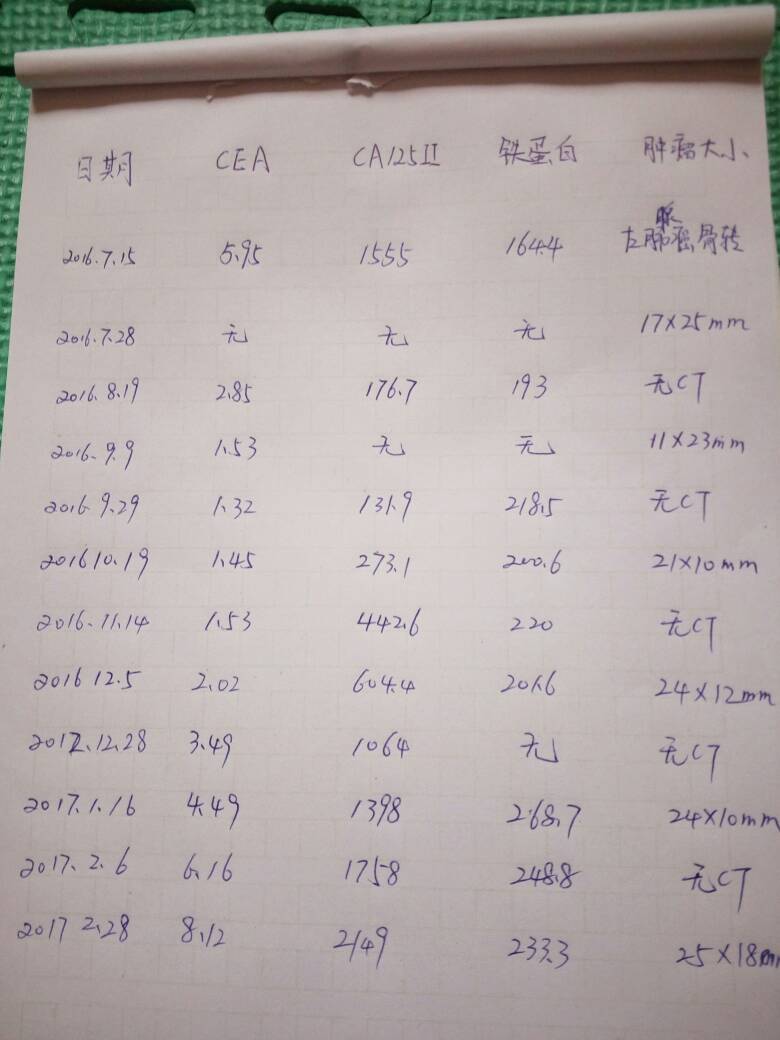 日期 CEA CA125II 铁蛋白 肿瘤大小
2016.7.15 5.95 1555 164.4 左肺腺癌骨转
2016.7.28 无 无 无 17×25mm
2016.8.19 2.85 176.7 193 无CT
2016.9.9 1.53 无 无 11×23mm
2016.9.29 1.32 131.9 218.5 无CT
2016 10.19 1.45 273.1 200.6 21×10mm
2016.11.14 1.53 442.6 220 无CT
2016 12.5 2.02 604.4 201.6 24×12mm
2012.12.28 3.49 1064 无 无CT
2017.1.16 4.49 1398 268.7 24×10mm
2017.2.6 6.16 1758 248.8 无CT
2017 2.28 8.12 2149 233.3 25×18mm